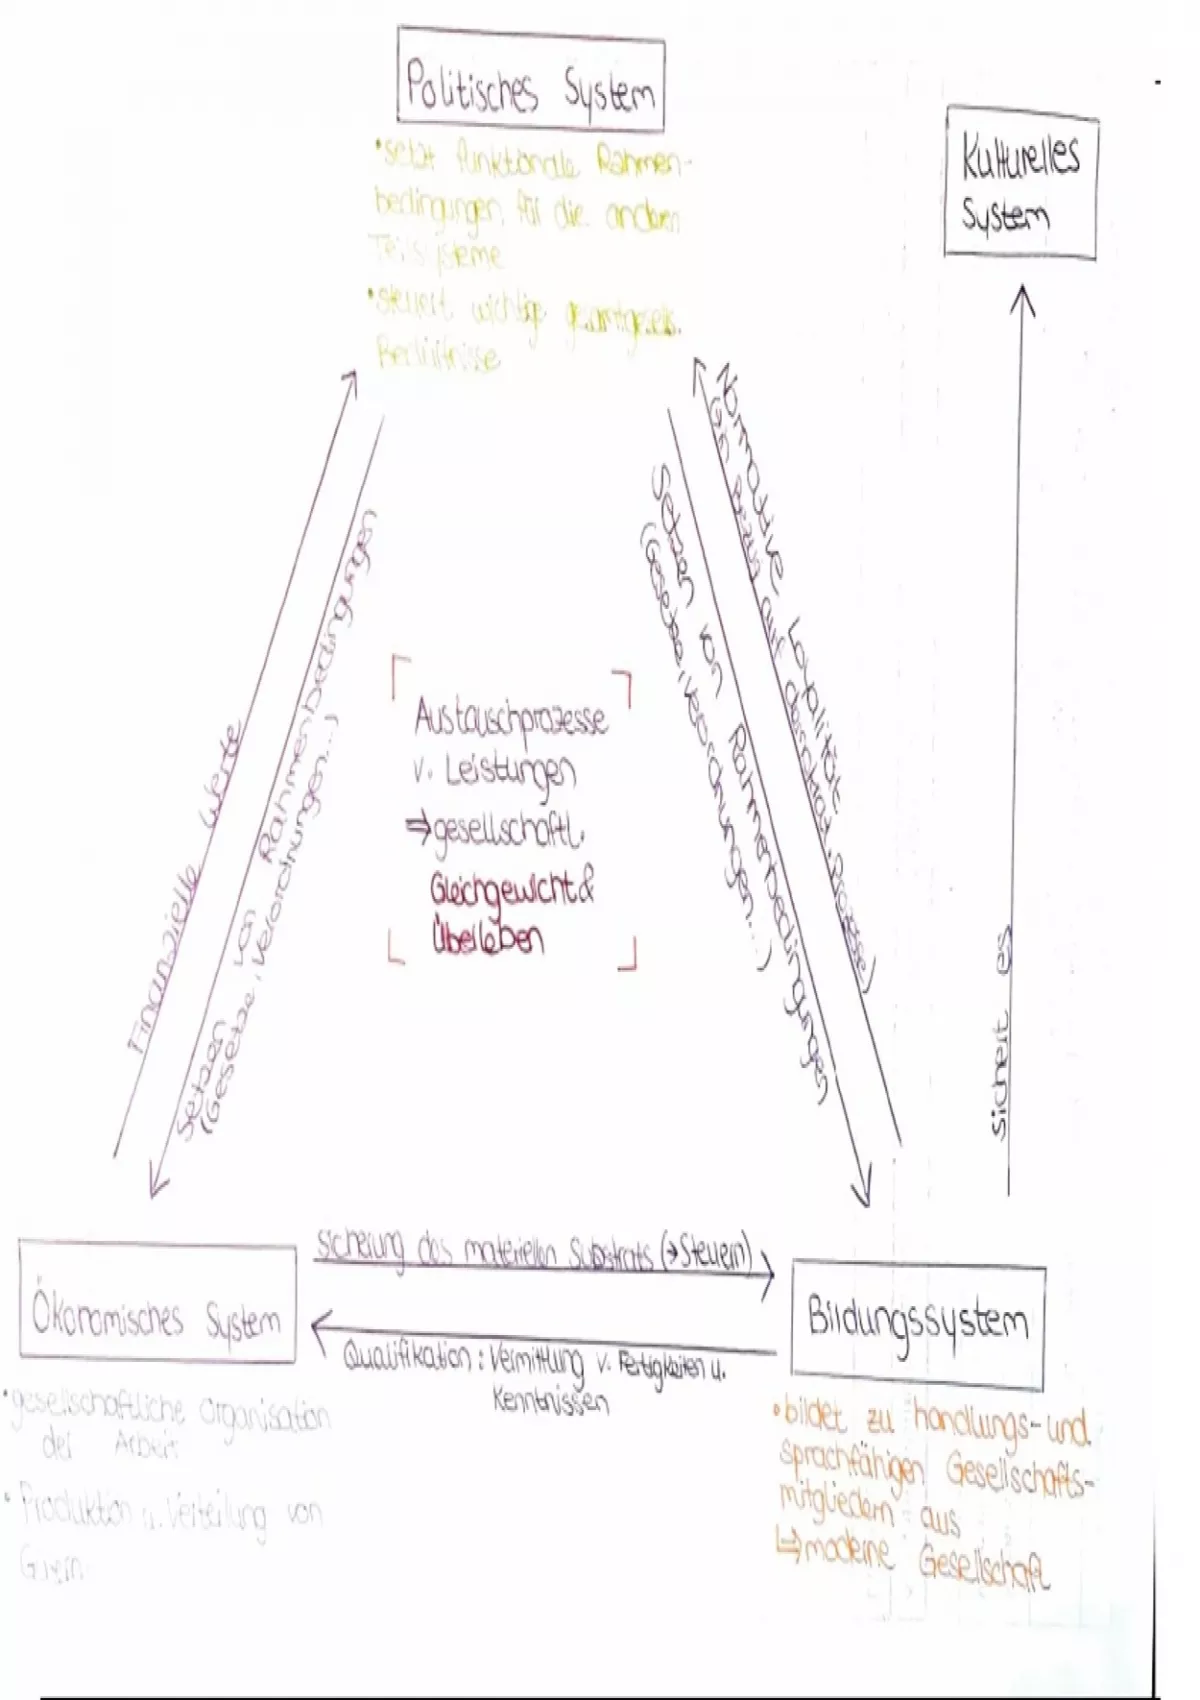 Politisches System
• setzt funktionale Rahmen-
bedingungen für die anderen
Teilsysteme
• steuert wichtige gesamtgesells.
Bedürfnisse
Kulturelles
System
Finanzielle Werte
Setzen von Rahmenbedingungen
(Gesetze, Verordnungen...)
Austauschprozesse
v. Leistungen
⇒ gesellschaftl.
Gleichgewicht &
Überleben
Setzen von Rahmenbedingungen
(Gesetze, Verordnungen...)
Normative Loyalität
(in Bezug auf demokrat. Prozesse)
sichert es
Ökonomisches System
• gesellschaftliche Organisation
der Arbeit
• Produktion u. Verteilung von
Gütern
Sicherung des materiellen Substrats (→ Steuern)
Qualifikation: Vermittlung v. Fertigkeiten u.
Kenntnissen
Bildungssystem
• bildet zu handlungs- und
sprachfähigen Gesellschafts-
mitgliedern aus
↳ moderne Gesellschaft